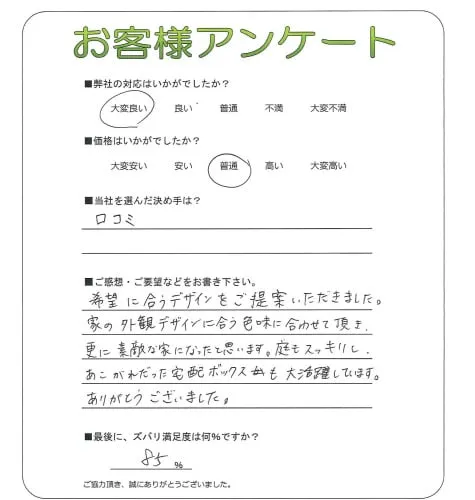 お客様アンケート
■弊社の対応はいかがでしたか？
大変良い 良い 普通 不満 大変不満
■価格はいかがでしたか？
大変安い 安い 普通 高い 大変高い
■当社を選んだ決め手は？
口コミ
■ご感想・ご要望などをお書き下さい。
希望に合うデザインをご提案いただきました。
家の外観デザインに合う色味に合わせて頂き、
更に素敵な家になったと思います。庭もスッキリし、
あこがれだった宅配ボックスも大活躍しています。
ありがとうございました。
■最後に、ズバリ満足度は何％ですか？
85 ％
ご協力頂き、誠にありがとうございました。